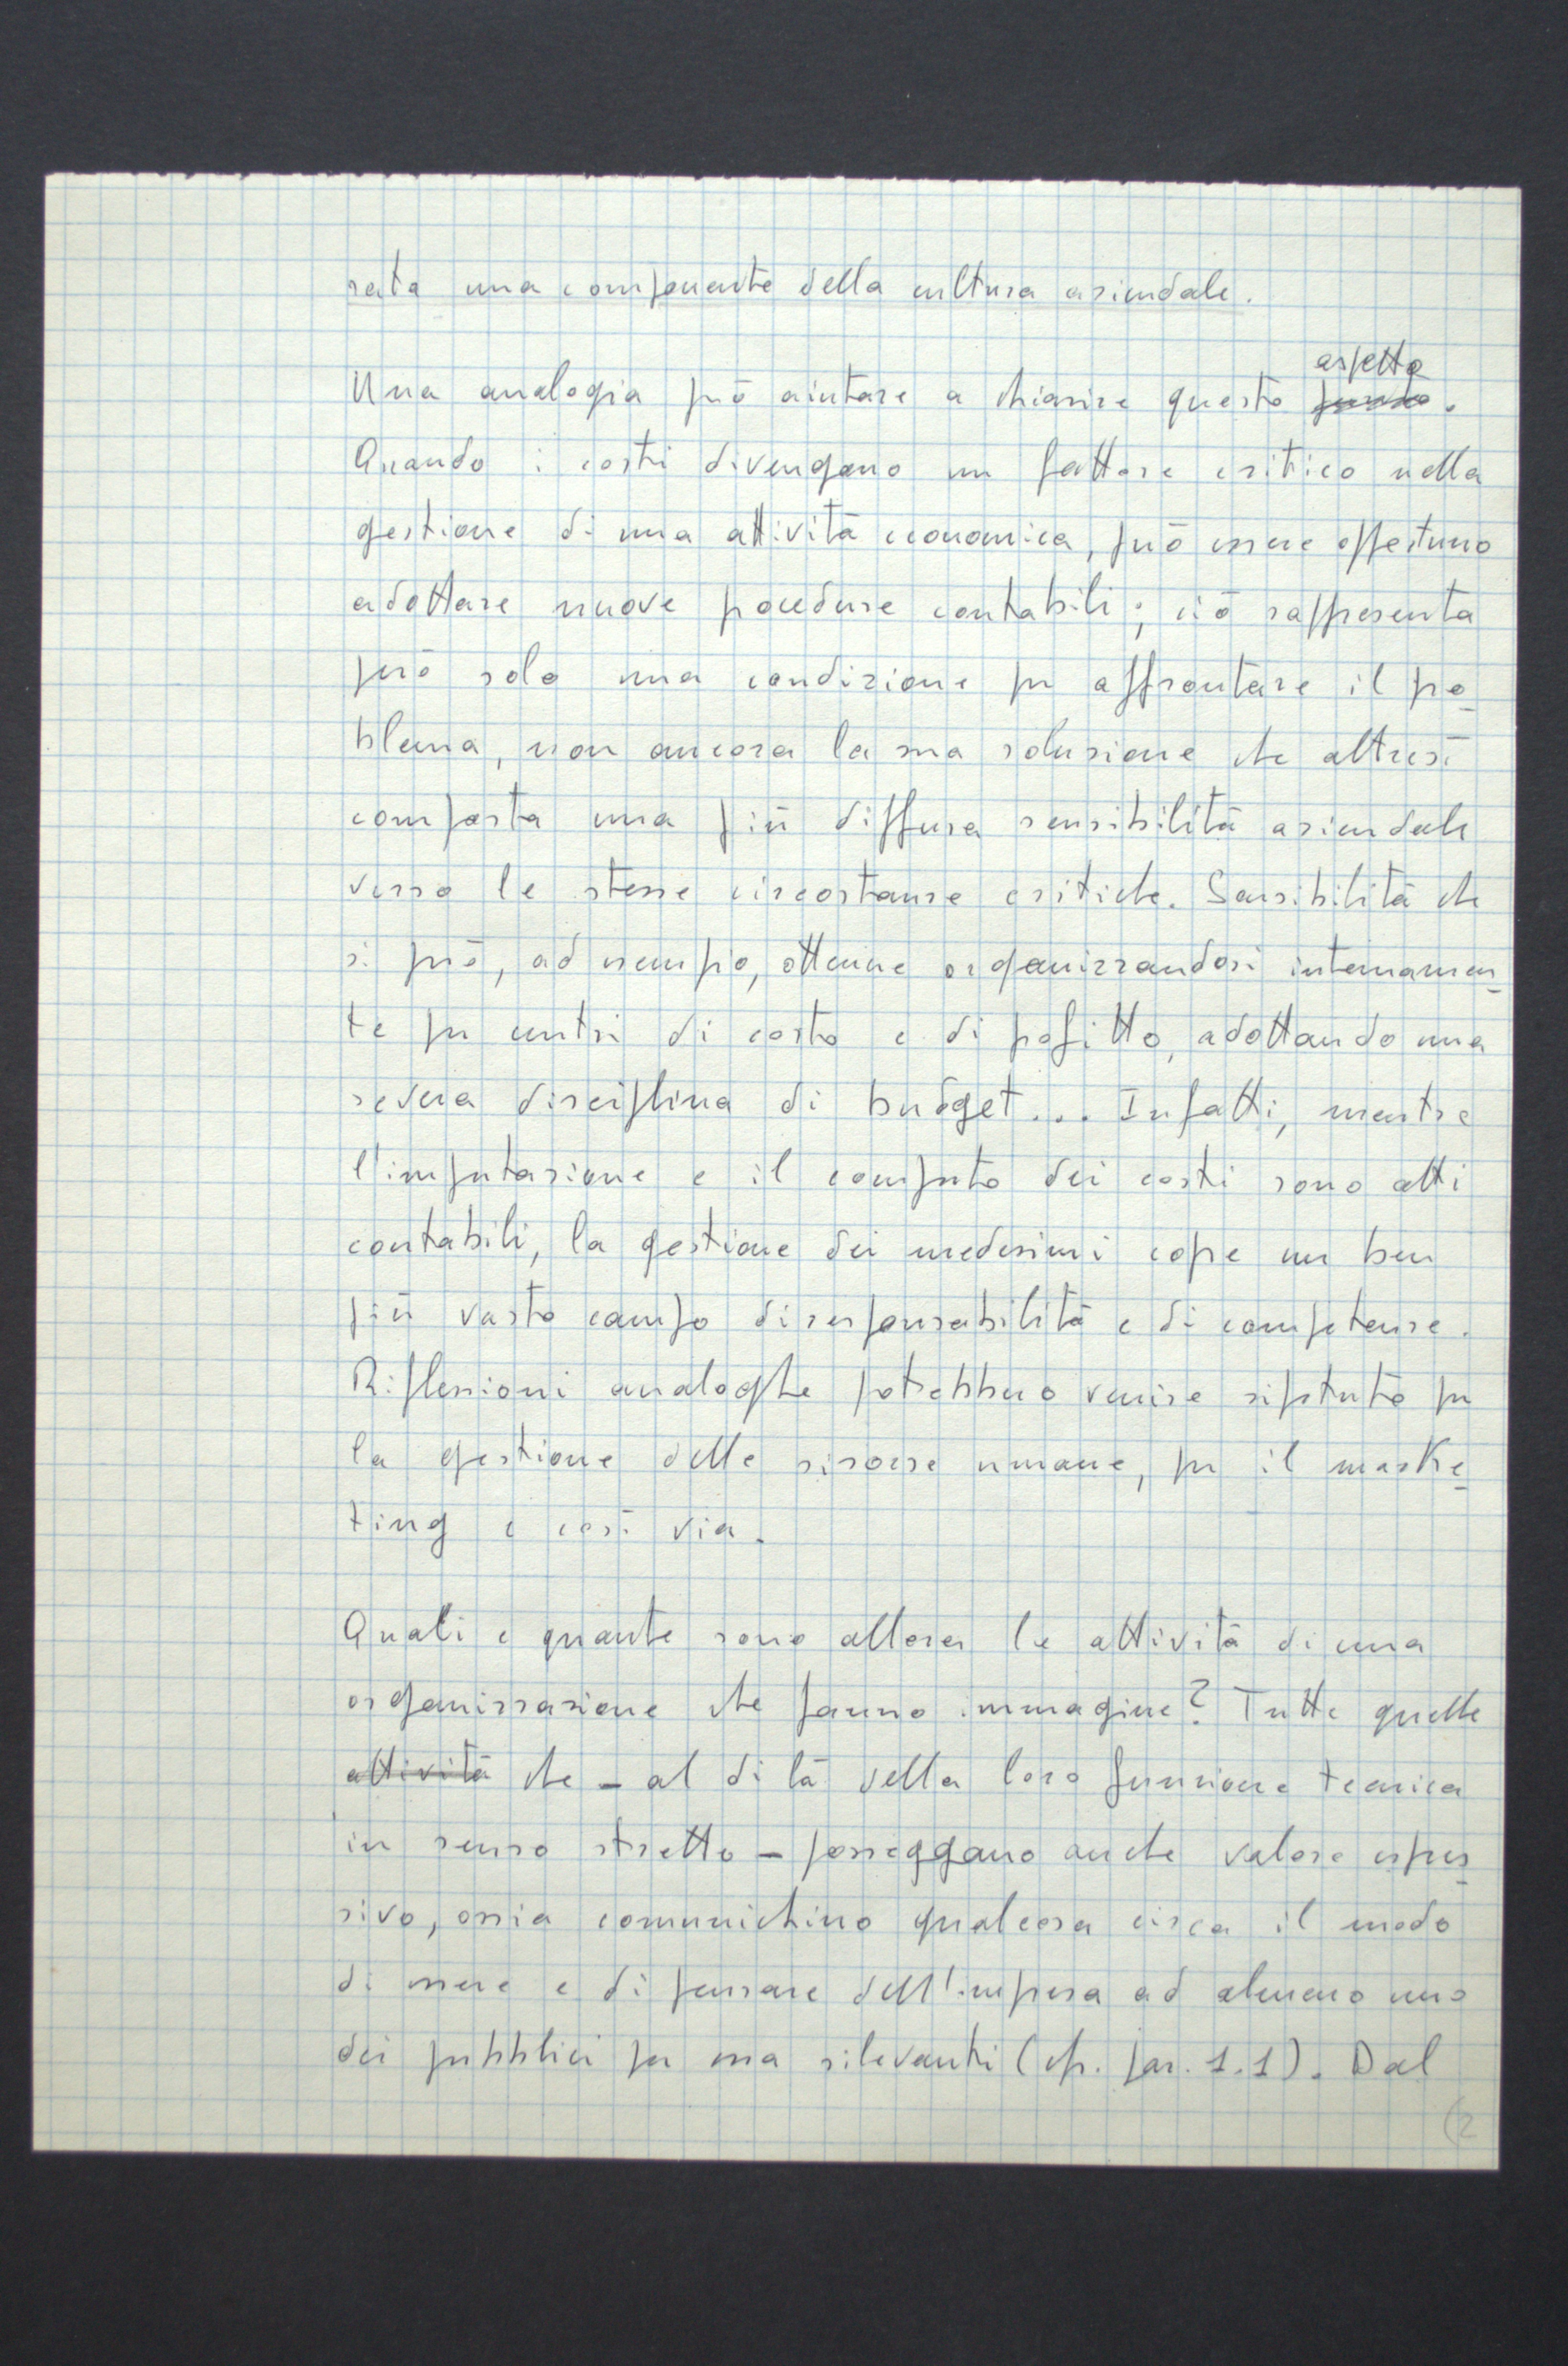 rata una componente della cultura aziendale.
aspetto
Una analogia può aiutare a chiarire questo punto.
Quando i costi divengono un fattore critico nella
gestione di una attività economica, può essere opportuno
adottare nuove procedure contabili; ciò rappresenta
però solo una condizione per affrontare il pro-
blema, non ancora la sua soluzione che altresì
comporta una più diffusa sensibilità aziendale
verso le stesse circostanze critiche. Sensibilità che
si può, ad esempio, ottenere organizzandosi internamen-
te per centri di costo e di profitto, adottando una
severa disciplina di budget... Infatti, mentre
l'imputazione e il computo dei costi sono atti
contabili, la gestione dei medesimi copre un ben
più vasto campo di responsabilità e di competenze.
Riflessioni analoghe potrebbero venire ripetute per
la gestione delle risorse umane, per il marke-
ting e così via.
Quali e quante sono allora le attività di una
organizzazione che fanno immagine? Tutte quelle
attività che - al di là della loro funzione tecnica
in senso stretto - posseggano anche valore espres-
sivo, ossia comunichino qualcosa circa il modo
di essere e di pensare dell'impresa ad almeno uno
dei pubblici per essa rilevanti (cfr. par. 1.1). Dal
(2